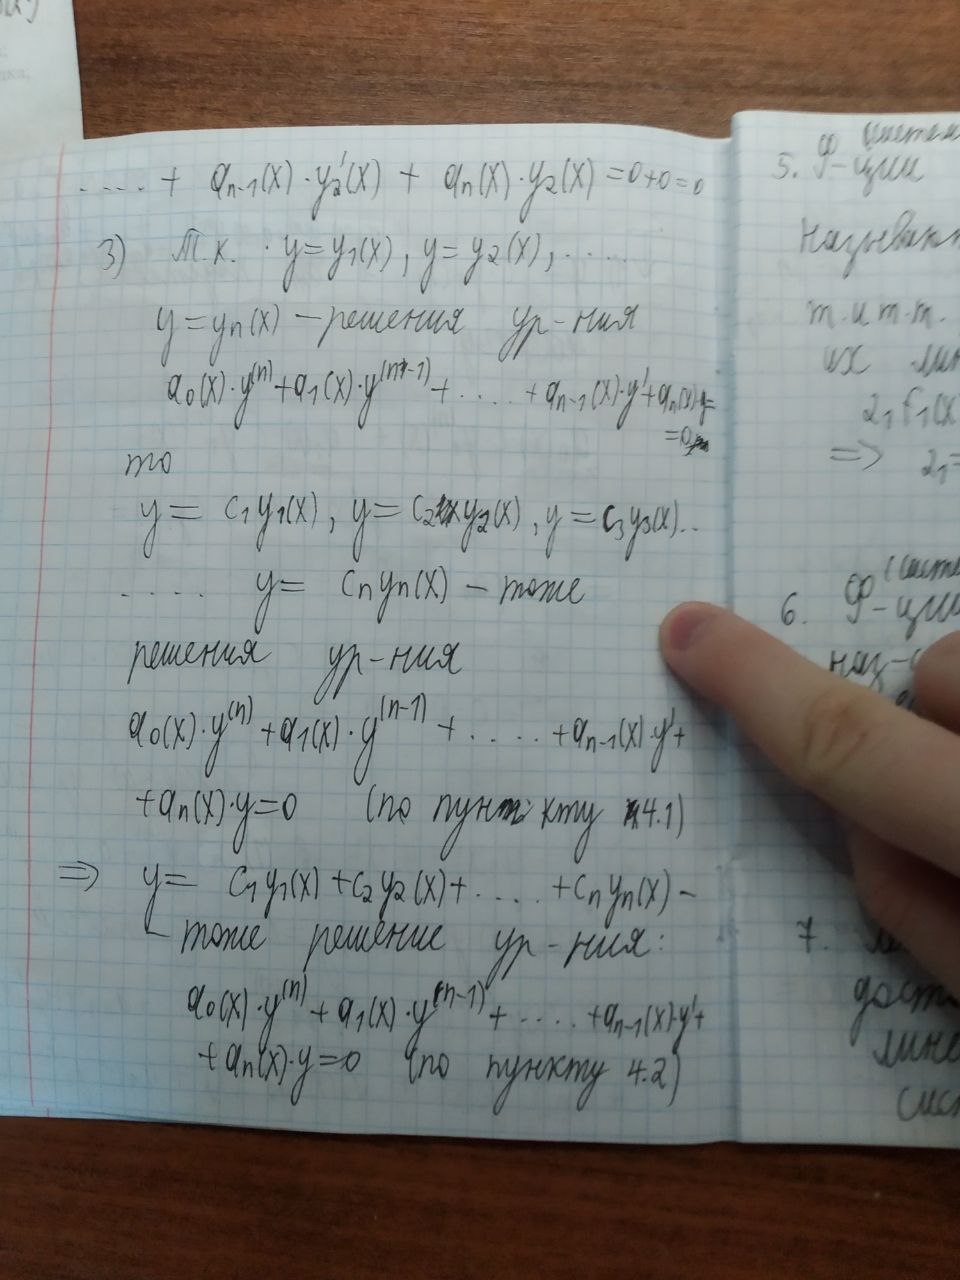 ..... + aₙ₋₁(x)·y₂'(x) + aₙ(x)·y₂(x) =0+0=0
3) Т.к. · y=y₁(x), y=y₂(x), .....
y=yₙ(x) – решения ур-ния
a₀(x)·y⁽ⁿ⁾+a₁(x)·y⁽ⁿ⁻¹⁾+ .... +aₙ₋₁(x)·y'+aₙ(x)·y=
=0
то
y= c₁y₁(x), y= c₂y₂(x), y= c₃y₃(x)..
..... y= cₙyₙ(x) – тоже
решения ур-ния
a₀(x)·y⁽ⁿ⁾+a₁(x)·y⁽ⁿ⁻¹⁾ + ..... +aₙ₋₁(x)·y'+
+aₙ(x)·y=0 (по пункту 4.1)
⇒ y= c₁y₁(x)+c₂y₂(x)+ .... +cₙyₙ(x) –
– тоже решение ур-ния:
a₀(x)·y⁽ⁿ⁾+a₁(x)·y⁽ⁿ⁻¹⁾+ ..... +aₙ₋₁(x)·y'+
+aₙ(x)·y=0 (по пункту 4.2)
5. Ф-ции
т.и т.т.
их
⇒
6. Ф-ции
7.